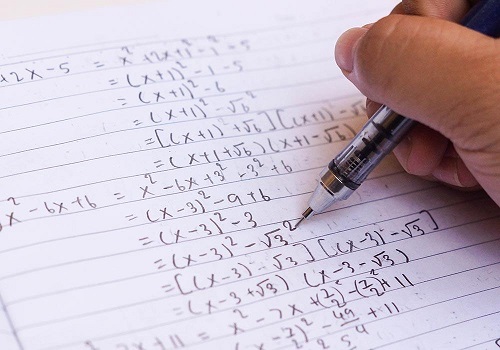 +2x-5 = x²+2x+1²-1²-5
= (x+1)²-1-5
= (x+1)²-6
= (x+1)²-√6²
= [(x+1)+√6][(x+1)-√
= (x+1+√6)(x+1-√6)
x²-6x+6 = x²-6x+3²-3²+6
= (x-3)²-9+6
= (x-3)²-3
= (x-3)²-√3²
= [(x-3)-√3][(x-3)-√3]
= (x-3+√3)(x-3-√3)
7x+11 = x²-7x+(7/2)²-(7/2)²+11
= (x-7/2)²-49/4+11